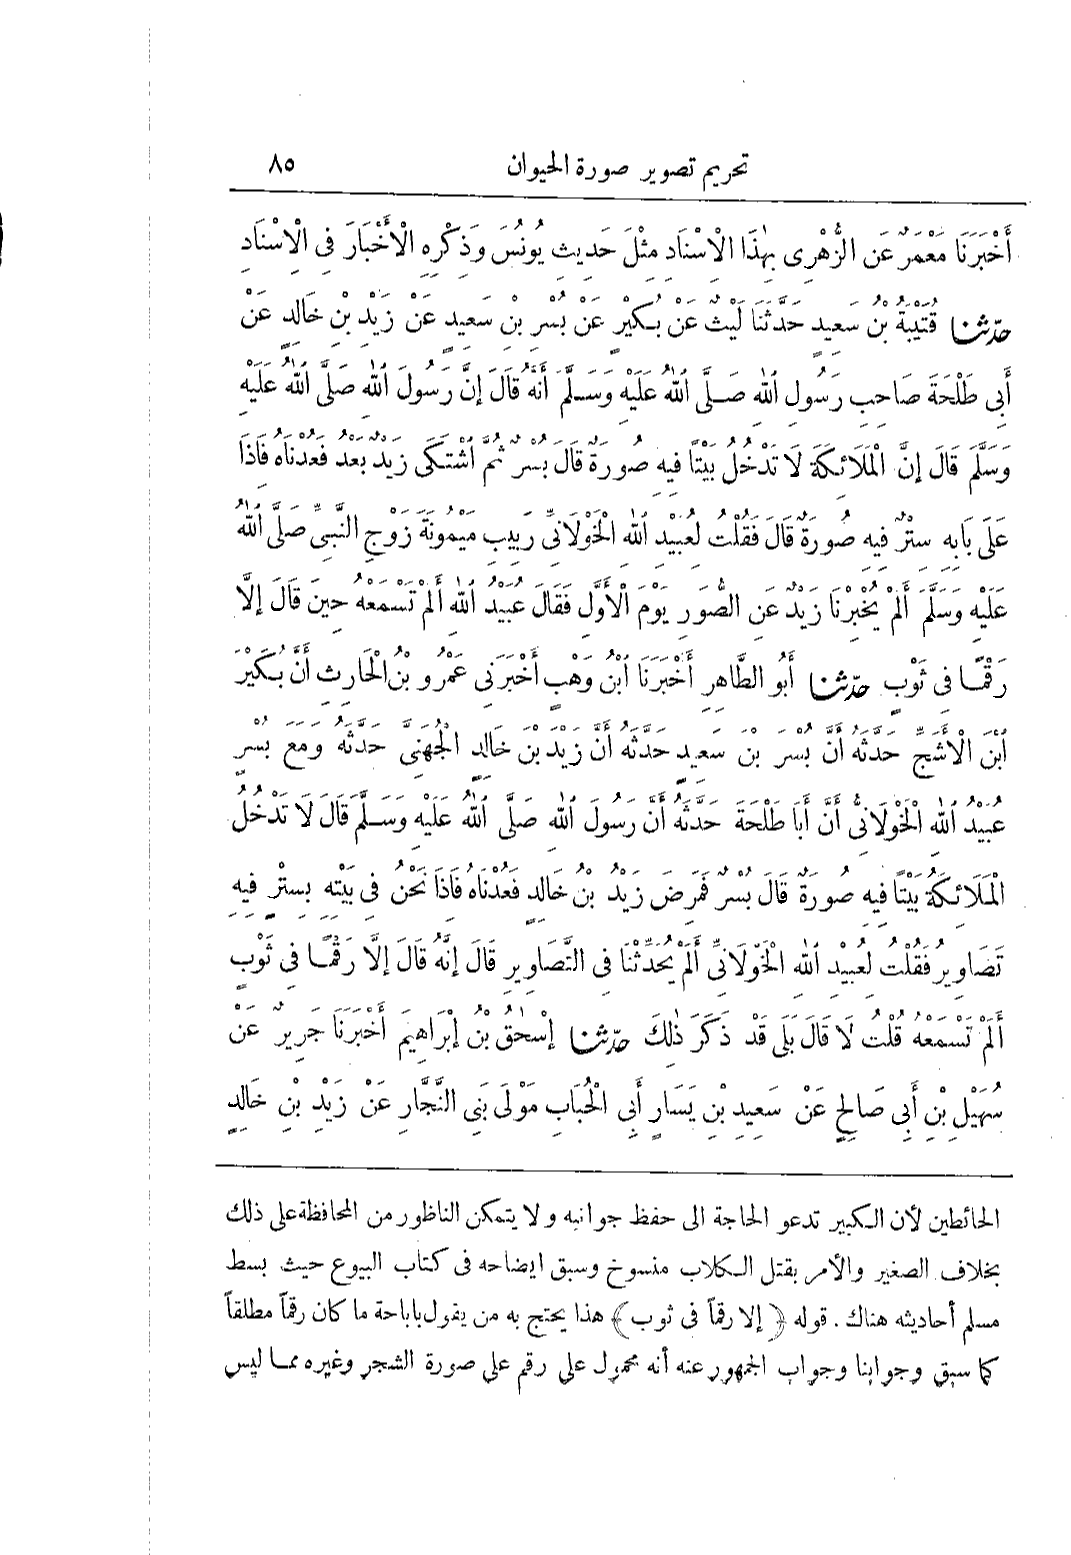 تحريم تصوير صورة الحيوان ٨٥
أَخْبَرَنَا مَعْمَرٌ عَنِ الزُّهْرِى بِهٰذَا الْاِسْنَادِ مِثْلَ حَدِيثِ يُونُسَ وَذِكْرِهِ الْأَخْبَارَ فِى الْاِسْنَادِ
حدّثنا قُتَيْبَةُ بْنُ سَعِيدٍ حَدَّثَنَا لَيْثٌ عَنْ بُكَيْرٍ عَنْ بُسْرِ بْنِ سَعِيدٍ عَنْ زَيْدِ بْنِ خَالِدٍ عَنْ
أَبِى طَلْحَةَ صَاحِبِ رَسُولِ ٱللهِ صَلَّى ٱللهُ عَلَيْهِ وَسَلَّمَ أَنَّهُ قَالَ إِنَّ رَسُولَ ٱللهِ صَلَّى ٱللهُ عَلَيْهِ
وَسَلَّمَ قَالَ إِنَّ الْمَلَائِكَةَ لَا تَدْخُلُ بَيْتًا فِيهِ صُورَةٌ قَالَ بُسْرٌ ثُمَّ ٱشْتَكَى زَيْدٌ بَعْدُ فَعُدْنَاهُ فَاذَا
عَلَى بَابِهِ سِتْرٌ فِيهِ صُورَةٌ قَالَ فَقُلْتُ لِعُبَيْدِ ٱللهِ الْخَوْلَانِىِّ رَبِيبِ مَيْمُونَةَ زَوْجِ النَّبِىِّ صَلَّى ٱللهُ
عَلَيْهِ وَسَلَّمَ أَلَمْ يُخْبِرْنَا زَيْدٌ عَنِ الصُّوَرِ يَوْمَ الْأَوَّلِ فَقَالَ عُبَيْدُ ٱللهِ أَلَمْ تَسْمَعْهُ حِينَ قَالَ إِلَّا
رَقْمًا فِى ثَوْبٍ حدّثنا أَبُو الطَّاهِرِ أَخْبَرَنَا ٱبْنُ وَهْبٍ أَخْبَرَنِى عَمْرُو بْنُ الْحَارِثِ أَنَّ بُكَيْرَ
ٱبْنَ الْأَشَجِّ حَدَّثَهُ أَنَّ بُسْرَ بْنَ سَعِيدٍ حَدَّثَهُ أَنَّ زَيْدَ بْنَ خَالِدٍ الْجُهَنِىَّ حَدَّثَهُ وَمَعَ بُسْرٍ
عُبَيْدُ ٱللهِ الْخَوْلَانِىُّ أَنَّ أَبَا طَلْحَةَ حَدَّثَهُ أَنَّ رَسُولَ ٱللهِ صَلَّى ٱللهُ عَلَيْهِ وَسَلَّمَ قَالَ لَا تَدْخُلُ
الْمَلَائِكَةُ بَيْتًا فِيهِ صُورَةٌ قَالَ بُسْرٌ فَمَرِضَ زَيْدُ بْنُ خَالِدٍ فَعُدْنَاهُ فَاذَا نَحْنُ فِى بَيْتِهِ بِسِتْرٍ فِيهِ
تَصَاوِيرُ فَقُلْتُ لِعُبَيْدِ ٱللهِ الْخَوْلَانِىِّ أَلَمْ يُحَدِّثْنَا فِى التَّصَاوِيرِ قَالَ إِنَّهُ قَالَ إِلَّا رَقْمًا فِى ثَوْبٍ
أَلَمْ تَسْمَعْهُ قُلْتُ لَا قَالَ بَلَى قَدْ ذَكَرَ ذٰلِكَ حدّثنا إِسْحٰقُ بْنُ إِبْرَاهِيمَ أَخْبَرَنَا جَرِيرٌ عَنْ
سُهَيْلِ بْنِ أَبِى صَالِحٍ عَنْ سَعِيدِ بْنِ يَسَارٍ أَبِى الْحُبَابِ مَوْلَى بَنِى النَّجَّارِ عَنْ زَيْدِ بْنِ خَالِدٍ
الحائطين لأن الكبير تدعو الحاجة الى حفظ جوانبه ولا يتمكن الناظور من المحافظة على ذلك
بخلاف الصغير والأمر بقتل الكلاب منسوخ وسبق ايضاحه فى كتاب البيوع حيث بسط
مسلم أحاديثه هناك . قوله ﴿إلا رقماً فى ثوب﴾ هذا يحتج به من يقول باباحة ما كان رقماً مطلقاً
كما سبق وجوابنا وجواب الجمهور عنه أنه محمول على رقم على صورة الشجر وغيره مما ليس